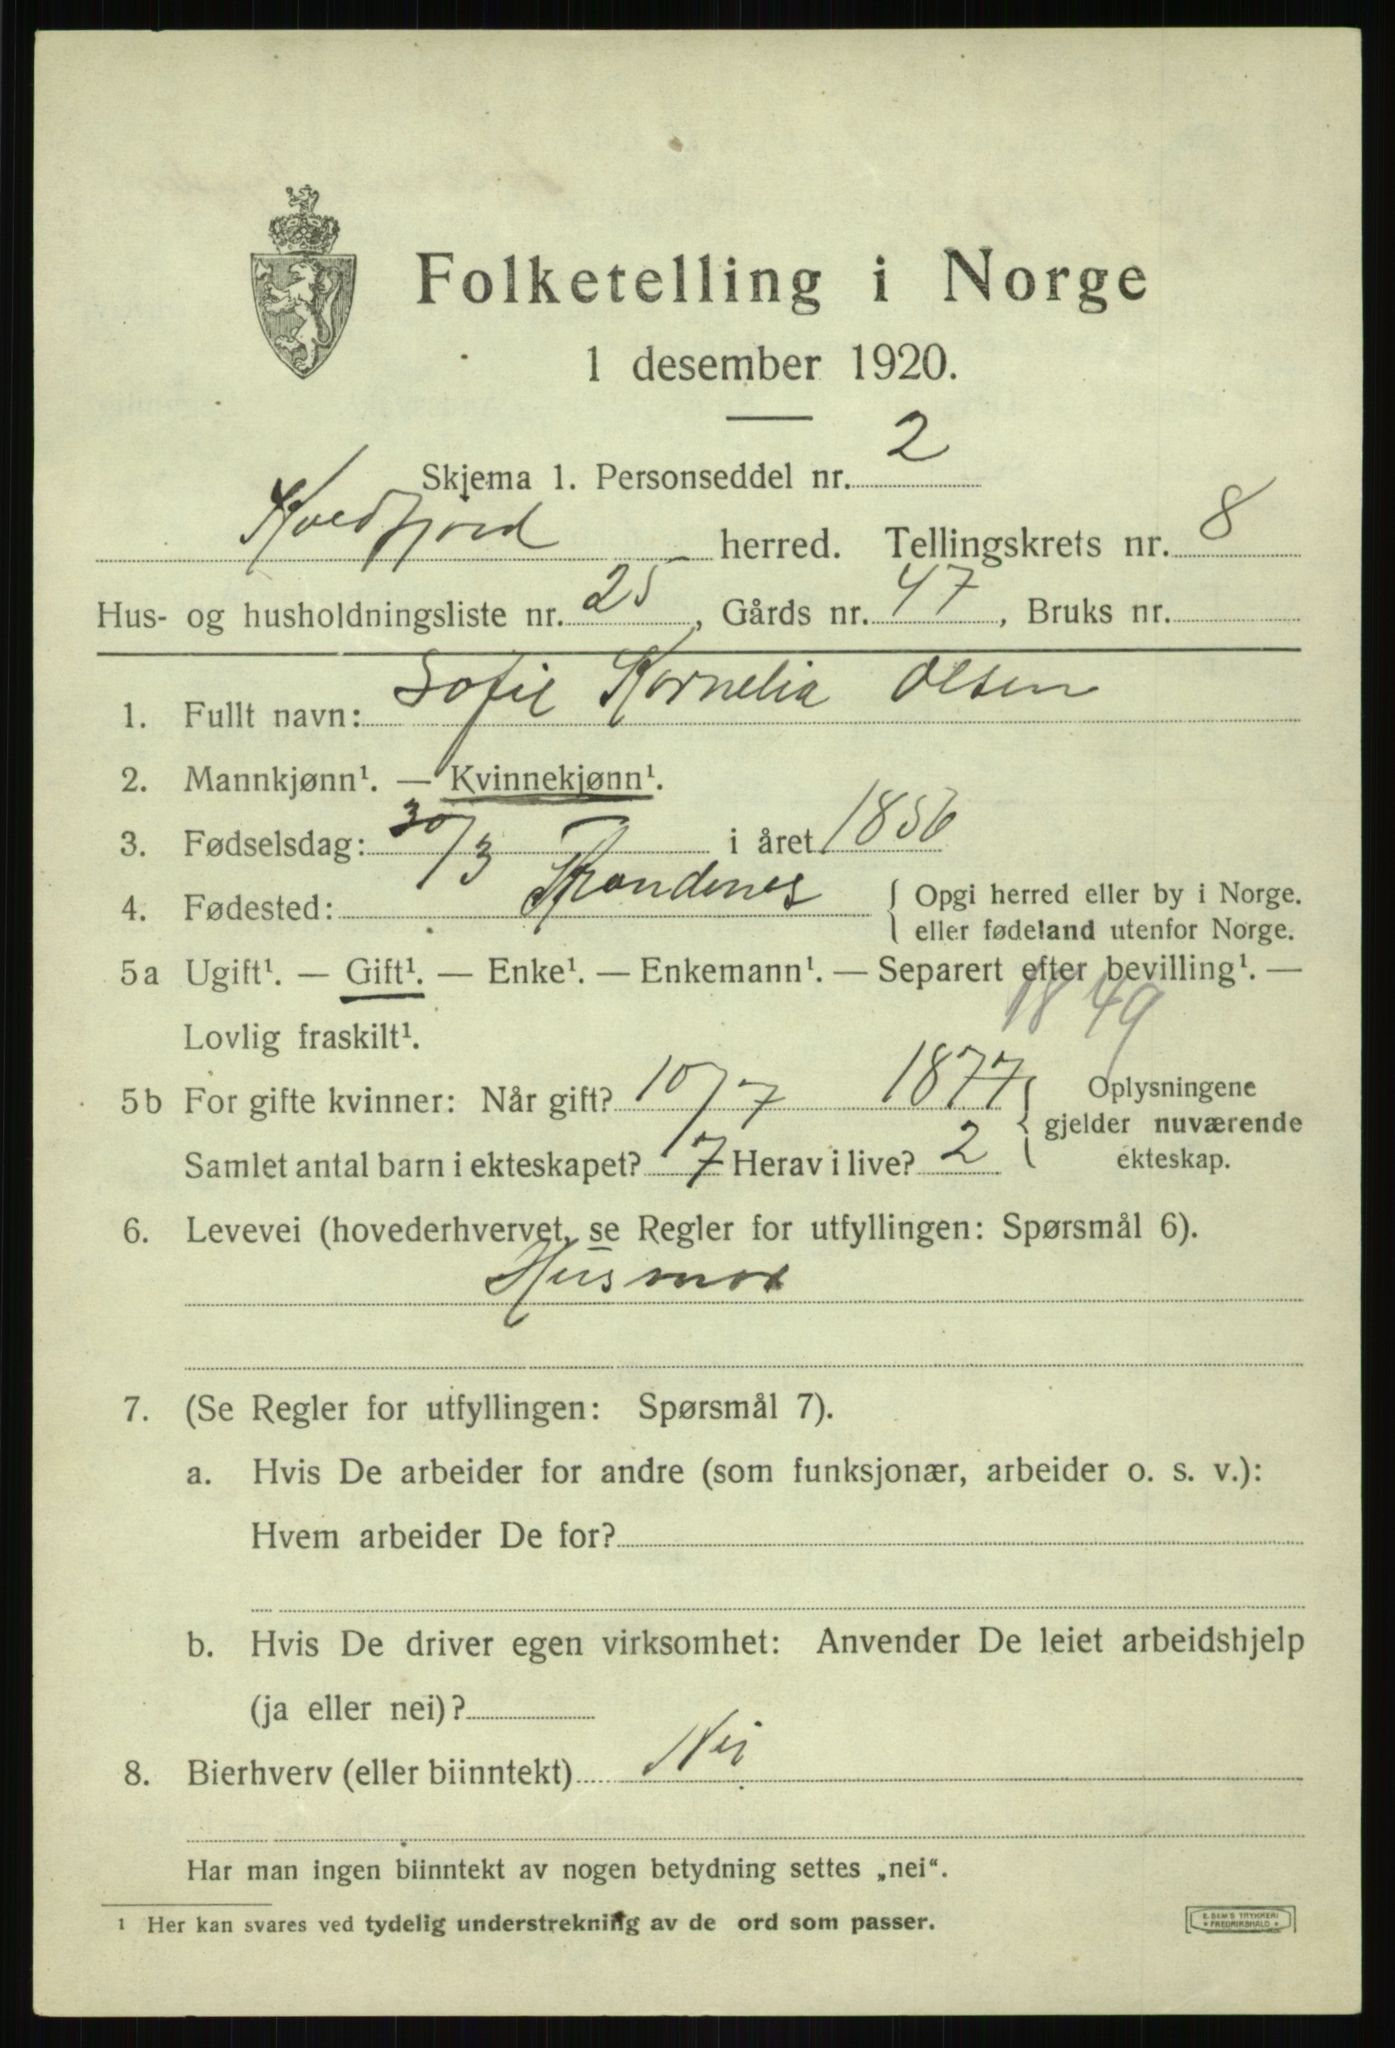 Folketelling i Norge
1 desember 1920.
Skjema 1. Personseddel nr. 2
Kvedfjord herred. Tellingskrets nr. 8
Hus- og husholdningsliste nr. 25, Gårds nr. 47, Bruks nr.
1. Fullt navn: Sofie Kornelia Olsen
2. Mannkjønn¹. — Kvinnekjønn¹.
3. Fødselsdag: 30/3 i året 1856
4. Fødested: Trondenes { Opgi herred eller by i Norge.
eller fødeland utenfor Norge.
5a Ugift¹. — Gift¹. — Enke¹. — Enkemann¹. — Separert efter bevilling¹. —
Lovlig fraskilt¹. 1849
5b For gifte kvinner: Når gift? 10/7 1877 { Oplysningene
gjelder nuværende
Samlet antal barn i ekteskapet? 7 Herav i live? 2 ekteskap.
6. Levevei (hovederhvervet, se Regler for utfyllingen: Spørsmål 6).
Husmor
7. (Se Regler for utfyllingen: Spørsmål 7).
a. Hvis De arbeider for andre (som funksjonær, arbeider o. s. v.):
Hvem arbeider De for?
b. Hvis De driver egen virksomhet: Anvender De leiet arbeidshjelp
(ja eller nei)?
8. Bierhverv (eller biinntekt) Nei
Har man ingen biinntekt av nogen betydning settes „nei“.
¹ Her kan svares ved tydelig understrekning av de ord som passer.
E. SEM'S TRYKKERI
FREDRIKSHALD